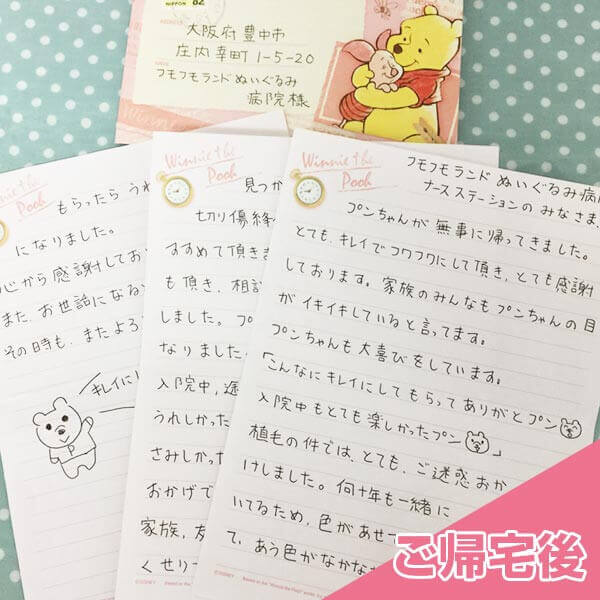 NIPPON 82
大阪府豊中市
庄内幸町1-5-20
フモフモランドぬいぐるみ
病院様
Winnie the
Pooh
もらったらうれ
になりました。
心から感謝してお
また、お世話になる
その時も、またよろ
キレイにし
Winnie the
Pooh
見つか
切り傷縫
すすめて頂き
も頂き、相談
しました。プ
なりました
入院中、遊
うれしかった
さみしかった
おかげで
家族、友
くせりー
©DISNEY
Winnie the
Pooh
フモフモランドぬいぐるみ病
ナースステーションのみなさま、
プンちゃんが無事に帰ってきました。
とても、キレイでフワフワにして頂き、とても感謝
しております。家族のみんなもプンちゃんの目
がイキイキしていると言ってます。
プンちゃんも大喜びをしています。
「こんなにキレイにしてもらってありがとプン
入院中もとても楽しかったプン」
植毛の件では、とても、ご迷惑おか
けしました。何十年も一緒に
いてるため、色があせ
て、あう色がなかな
©DISNEY
ご帰宅後